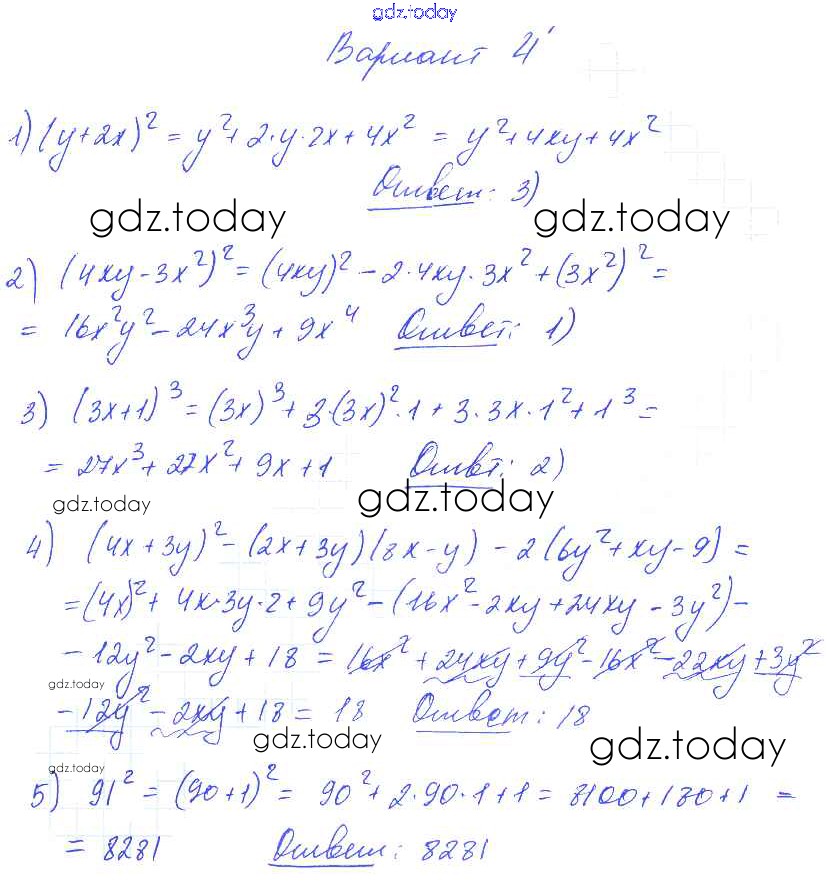 gdz.today
Вариант 4
1) (y+2x)² = y²+2·y·2x+4x² = y²+4xy+4x²
Ответ: 3)
gdz.today gdz.today
2) (4xy-3x²)² = (4xy)² - 2·4xy·3x² + (3x²)² =
= 16x²y² - 24x³y + 9x⁴ Ответ: 1)
3) (3x+1)³ = (3x)³ + 3·(3x)²·1 + 3·3x·1² + 1³ =
= 27x³ + 27x² + 9x + 1 Ответ: 2)
gdz.today gdz.today
4) (4x+3y)² - (2x+3y)(8x-y) - 2(6y²+xy-9) =
= (4x)² + 4x·3y·2 + 9y² - (16x² - 2xy + 24xy - 3y²) -
- 12y² - 2xy + 18 = 16x² + 24xy + 9y² - 16x² - 22xy + 3y²
gdz.today
- 12y² - 2xy + 18 = 18 Ответ: 18
gdz.today gdz.today
gdz.today
5) 91² = (90+1)² = 90² + 2·90·1 + 1 = 8100 + 180 + 1 =
= 8281 Ответ: 8281